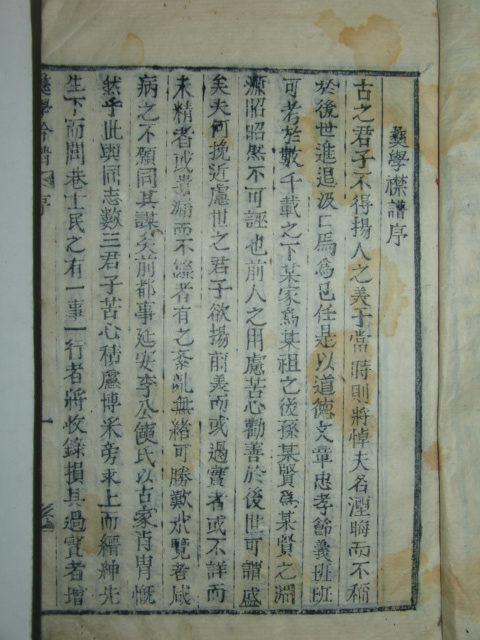 彝學襟譜序
古之君子不得揚人之義于當時則將悼夫名湮晦而不稱
於後世進退汲口焉爲己任是以道德文章忠孝節義班班
可考於數千載之下某家爲某祖之後孫某賢爲某賢之淵
源昭昭然不可誣也前人之用處苦心勸善於後世可謂盛
矣夫何挽近處世之君子欲揚前義而或過實者或不詳而
未精者或遺漏而不錄者有之紊亂無緖可勝歎水覽者咸
病之不願同其謀矣前都事延安李公馥氏以古家肖胄慨
然乎此與同志數三君子苦心積慮博采旁求上而縉紳先
生下而閭巷士民之有一事一行者將收錄損其過實者增